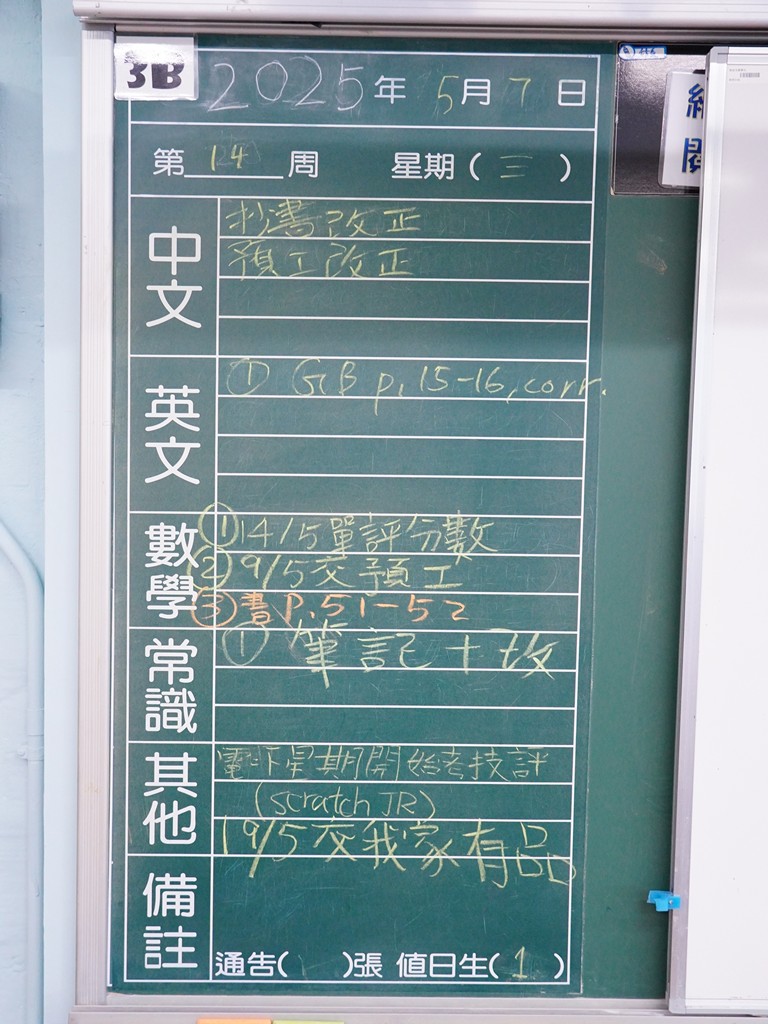 3B
2025年5月7日
第14周 星期(三)
中文
抄書改正
預工改正
英文
① GB p.15-16, corr.
數學
①14/5單評分數
②9/5交預工
③書P.51-52
常識
① 筆記+改
其他
電下星期開始考技評
(scratch JR)
19/5交我家有品
備註
通告( )張 值日生(1)